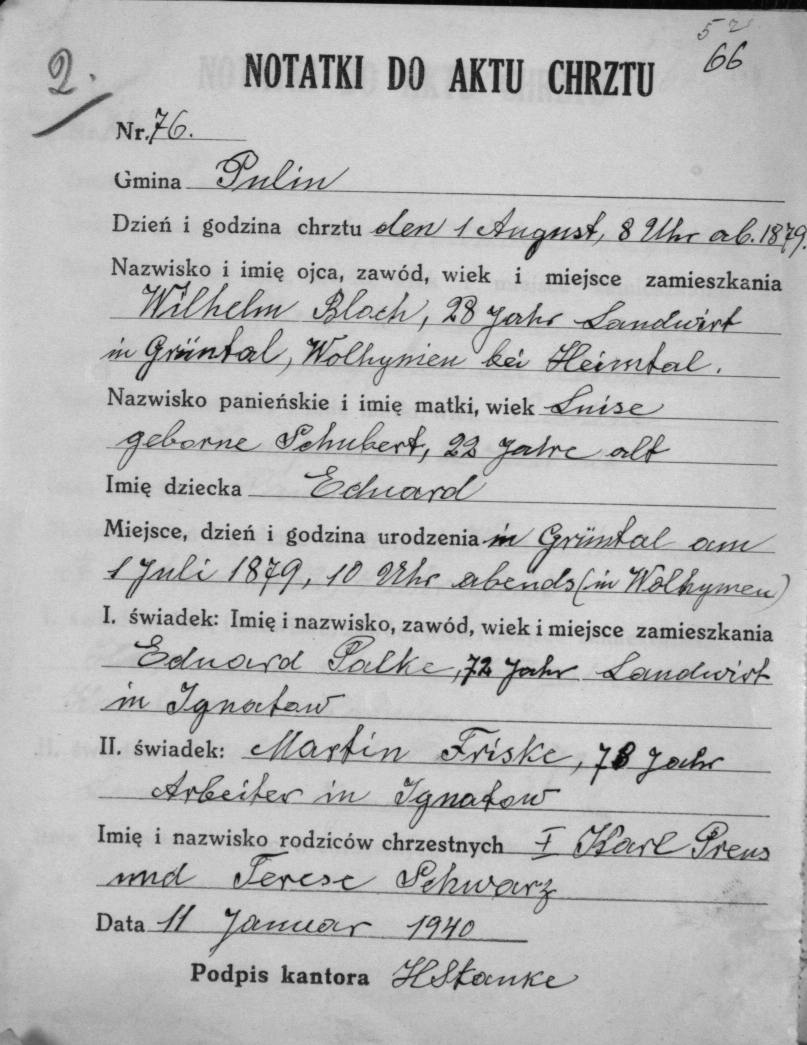 2.
52
66
NOTATKI DO AKTU CHRZTU
Nr. 76.
Gmina Pulin
Dzień i godzina chrztu den 1 August, 8 Uhr ab. 1879.
Nazwisko i imię ojca, zawód, wiek i miejsce zamieszkania
Wilhelm Bloch, 28 Jahr Landwirt
in Grüntal, Wolhynien bei Heimtal.
Nazwisko panieńskie i imię matki, wiek Luise
geborne Schubert, 22 Jahre alt
Imię dziecka Eduard
Miejsce, dzień i godzina urodzenia in Grüntal am
1 Juli 1879, 10 Uhr abends (in Wolhynien)
I. świadek: Imię i nazwisko, zawód, wiek i miejsce zamieszkania
Eduard Palke, 72 Jahr Landwirt
in Ignatow
II. świadek: Martin Friske, 73 Jahr
Arbeiter in Ignatow
Imię i nazwisko rodziców chrzestnych I Karl Preus
und Terese Schwarz
Data 11 Januar 1940
Podpis kantora HStanke